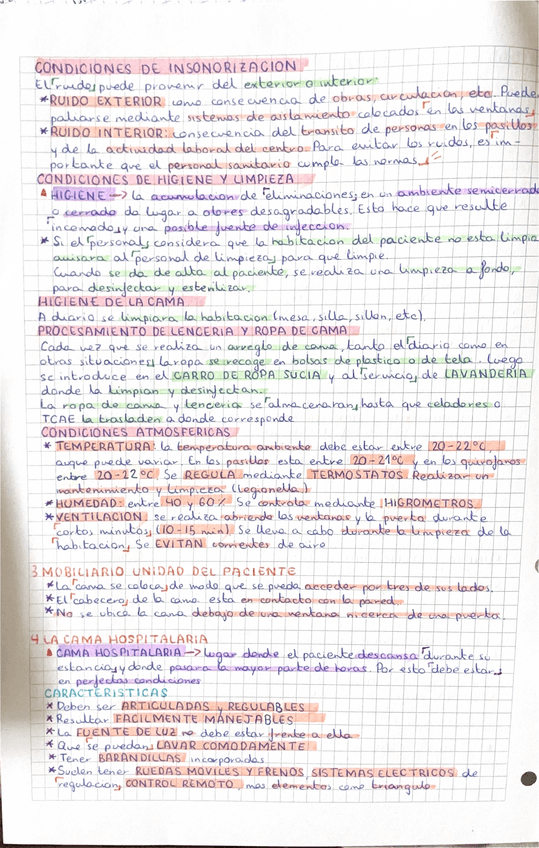 CONDICIONES DE INSONORIZACION
El ruido, puede provenir del exterior o interior.
* RUIDO EXTERIOR como consecuencia de obras, circulacion, etc. Puede
paluarse mediante sistemas de aislamiento colocados en las ventanas,
* RUIDO INTERIOR: consecuencia del transito de personas en los pasillos
y de la actividad laboral del centro. Para evitar los ruidos, es im-
portante que el personal sanitario cumpla las normas.
CONDICIONES DE HIGIENE Y LIMPIEZA
HIGIENE → la acumulacion de eliminaciones, en un ambiente semicerrado
o cerrado da lugar a olores desagradables. Esto hace que resulte
incomodo y una posible fuente de infeccion.
* Si el personal, considera que la habitacion del paciente no esta limpia
avisara al personal de limpieza, para que limpie.
Cuando se da de alta al paciente, se realiza una limpieza a fondo,
para desinfectar y esterilizar.
HIGIENE DE LA CAMA
A diario se limpiara la habitacion (mesa, silla, sillon, etc).
PROCESAMIENTO DE LENCERIA Y ROPA DE CAMA
Cada vez que se realiza un arreglo de cama, tanto el diario como en
otras situaciones, la ropa se recoge en bolsas de plastico o de tela. Luego
se introduce en el CARRO DE ROPA SUCIA y al servicio, de LAVANDERIA
donde la limpian y desinfectan.
La ropa de cama y lenceria se almacenaran, hasta que celadores o
TCAE la trasladen a donde corresponde
CONDICIONES ATMOSFERICAS
* TEMPERATURA: la temperatura ambiente debe estar entre 20-22ºC,
auque puede variar. En los pasillos esta entre 20-21ºC y en los quirofanos
entre 20-22ºC. Se REGULA mediante TERMOSTATOS Realizar un
mantenimiento y limpieza (legionella).
* HUMEDAD: entre 40 y 60% Se controla mediante HIGROMETROS
* VENTILACION: se realiza abriendo las ventanas y la puerta durante
cortos minutos, (10-15 min). Se lleva a cabo durante la limpieza de la
habitacion. Se EVITAN corrientes de aire
3. MOBILIARIO UNIDAD DEL PACIENTE
* La cama se coloca, de modo que se pueda acceder por tres de sus lados.
* El cabecero, de la cama esta en contacto con la pared.
* No se ubica la cama debajo de una ventana ni cerca de una puerta.
4. LA CAMA HOSPITALARIA
CAMA HOSPITALARIA → lugar donde el paciente descansa durante su
estancia, y donde pasara la mayor parte de horas. Por esto debe estar,
en perfectas condiciones
CARACTERISTICAS
* Deben ser ARTICULADAS y REGULABLES
* Resultar FACILMENTE MANEJABLES
* La FUENTE DE LUZ no debe estar frente a ella
* Que se puedan, LAVAR COMODAMENTE
* Tener BARANDILLAS incorporadas
* Suelen tener RUEDAS MOVILES Y FRENOS, SISTEMAS ELECTRICOS de
regulacion, CONTROL REMOTO, mas elementos como triangulo